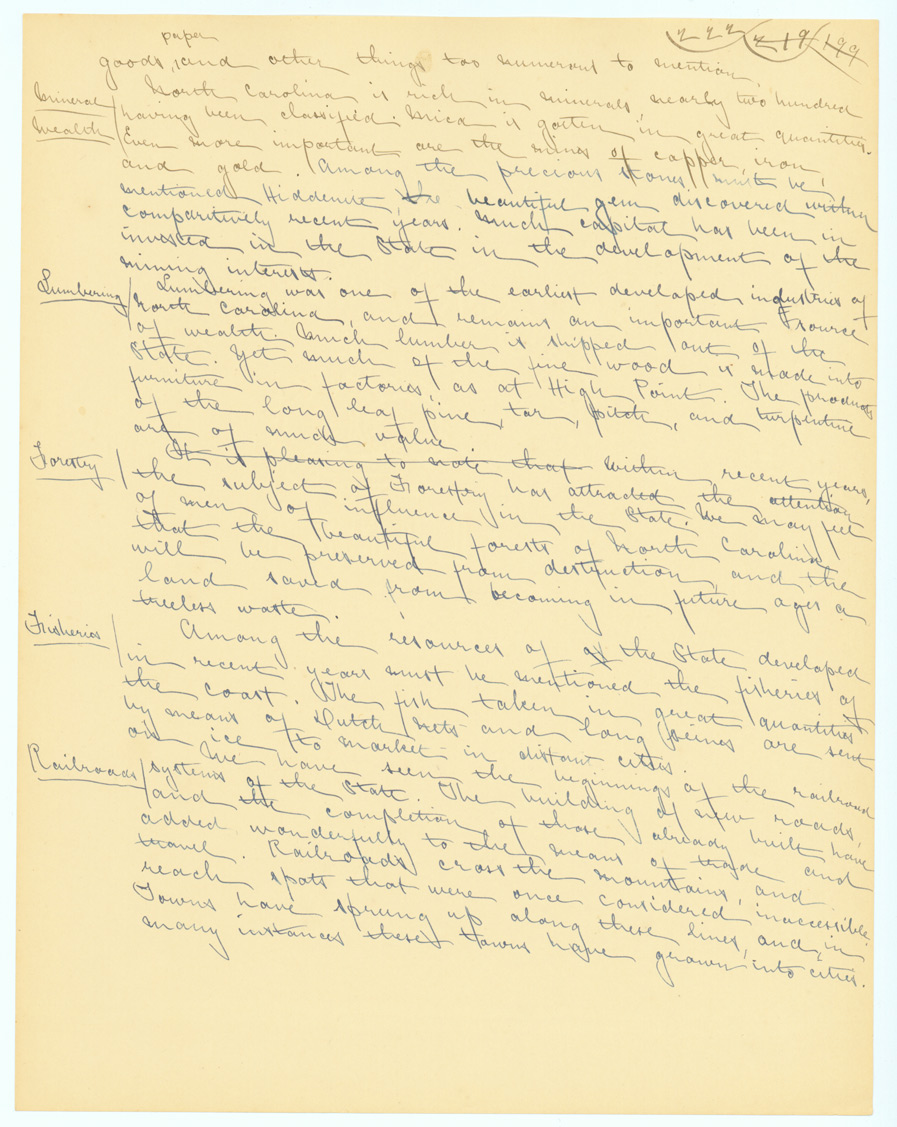 222 219 199
paper
goods, and other things too numerous to mention.
North Carolina is rich in minerals nearly two hundred
Mineral / having been classified. Mica is gotten in great quantities.
Wealth / Even more important are the mines of copper, iron
and gold. Among the precious stones must be
mentioned Hiddenite the beautiful gem discovered within
comparitively recent years. Much capital has been in
invested in the State in the development of the
mining interests.
Lumbering / Lumbering was one of the earliest developed industries of
North Carolina, and remains an important source
of wealth. Much lumber is shipped out of the
State. Yet much of the fine wood is made into
furniture in factories, as at High Point. The products
of the long leaf pine, tar, pitch, and turpentine
are of much value
Forestry / It is pleasing to note that within recent years,
the subject of Forestry has attracted the attention
of men of influence in the State. We may feel
that the beautiful forests of North Carolina
will be preserved from destruction, and the
land saved from becoming in future ages a
treeless waste.
Fisheries / Among the resources of the State developed
in recent years must be mentioned the fisheries of
the coast. The fish taken in great quantities
by means of Dutch nets and long seines are sent
on ice to market in distant cities.
Railroads / We have seen the beginnings of the railroad
systems of the State. The building of new roads,
and the completion of those already built have
added wonderfully to the means of trade and
travel. Railroads cross the mountains, and
reach spots that were once considered inaccessible.
Towns have sprung up along these lines, and, in
many instances these towns have grown into cities.